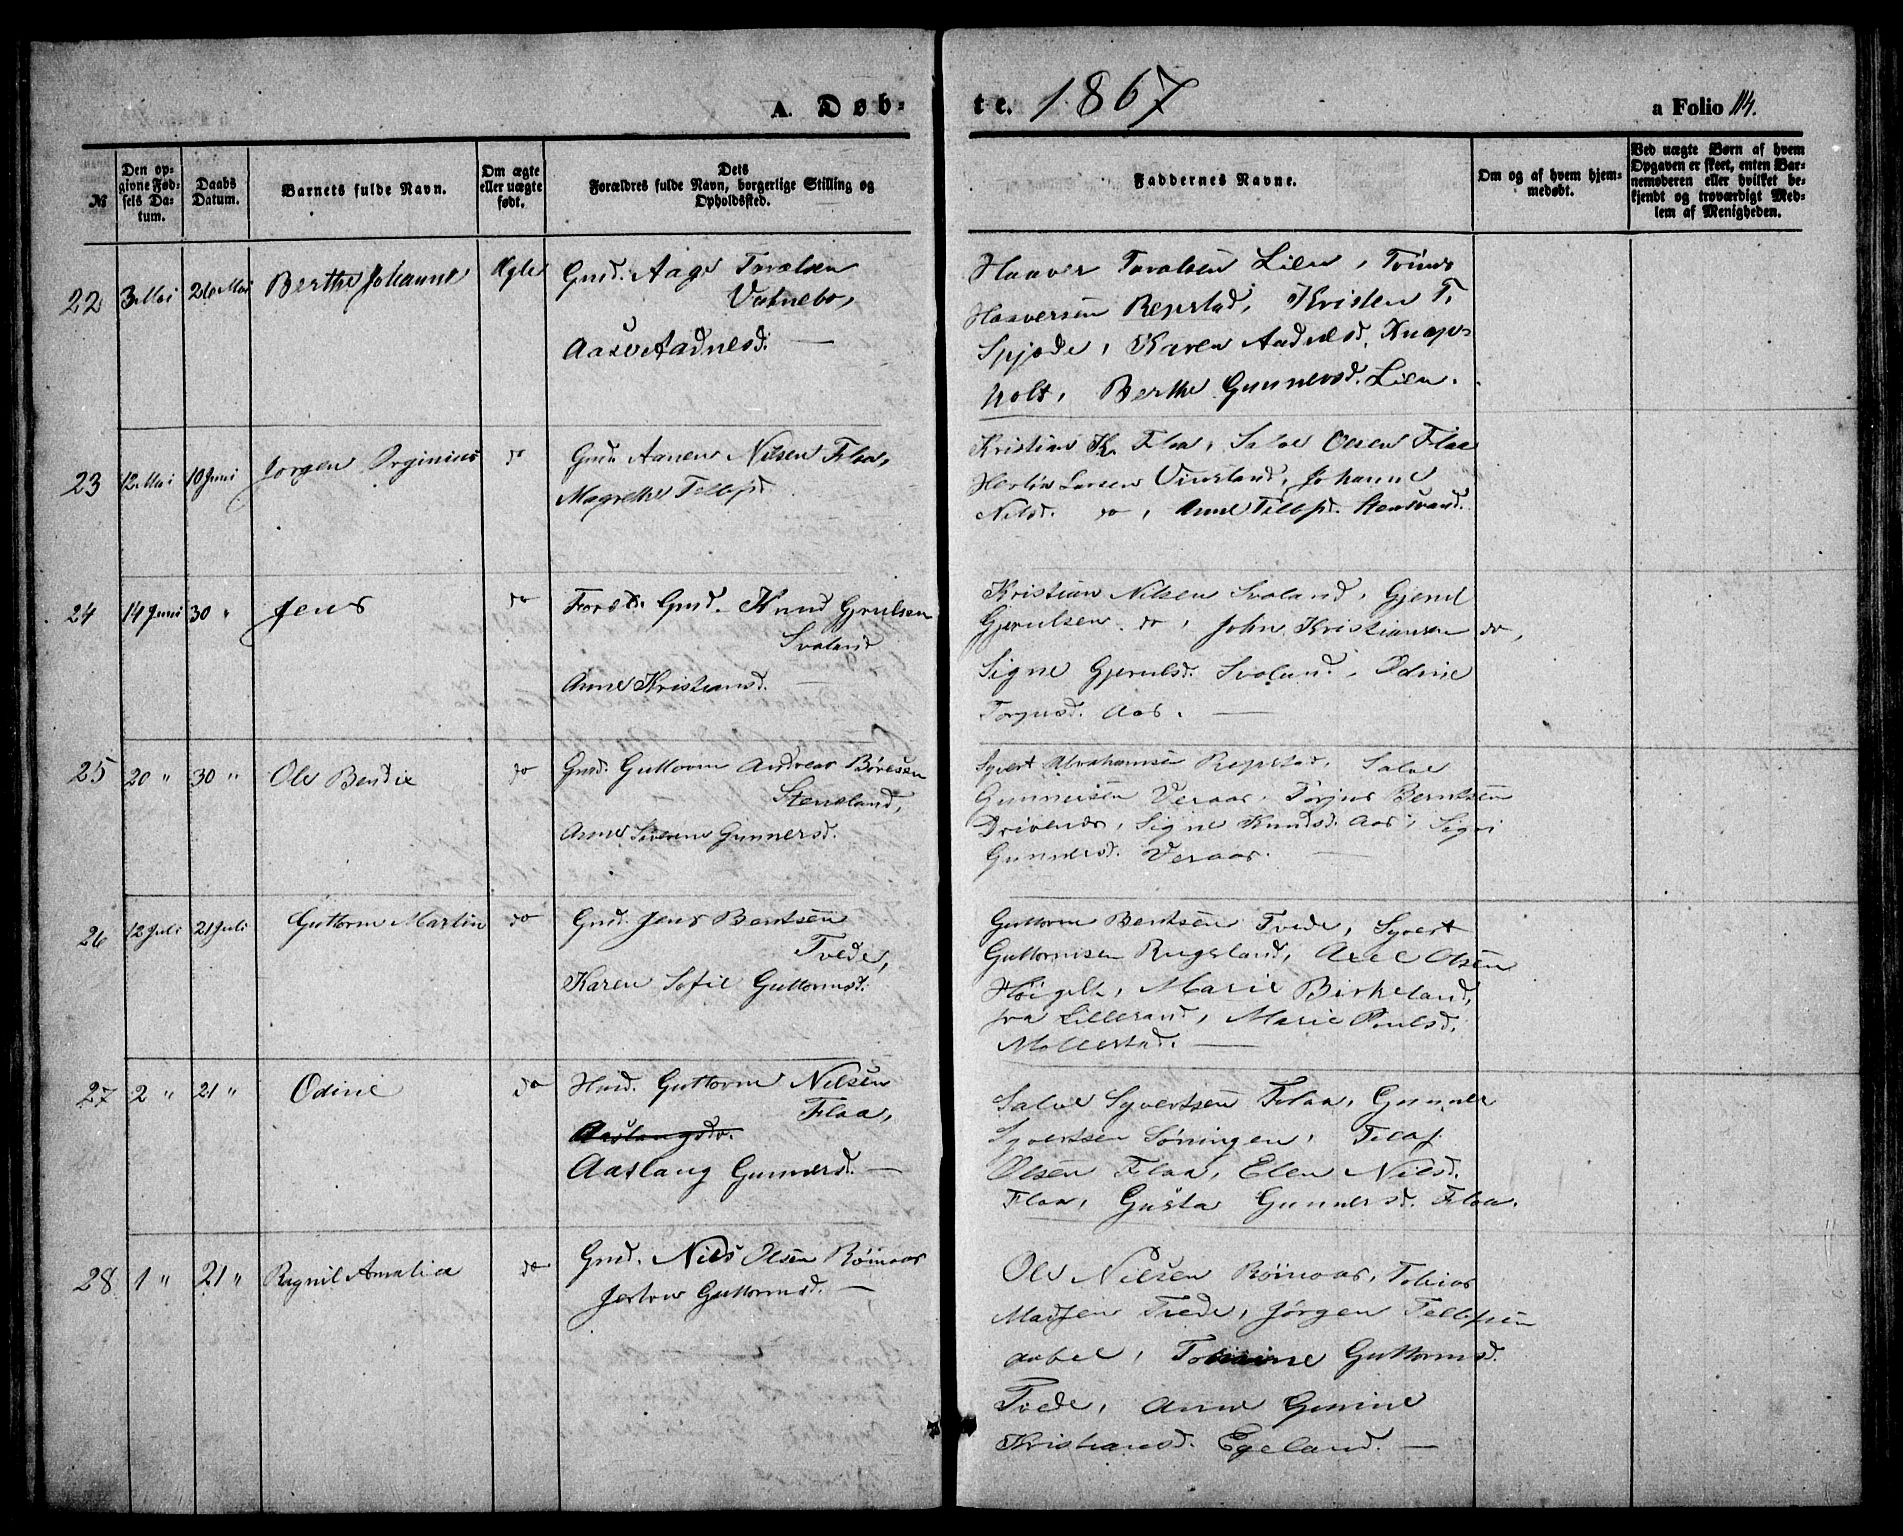 A. Døb-
te. 1867
a Folio 114.
№
Den op-
givne Fød-
sels Da-
tum.
Daabs
Datum.
Barnets fulde Navn.
Om ægte
eller uægte
født.
Dets
Forældres fulde Navn, borgerlige Stilling og
Opholdssted.
Faddernes Navne.
Om og af hvem hjem-
medøbt.
Ved uægte Børn af hvem
Opgaven er skeet, enten Bar-
nemoderen eller hvilket be-
kjendt og troværdigt Med-
lem af Menigheden.
22 3 Mai 26 Mai Berthe Johanne Ægte
Gmd. Aage Torálsen
Vatnebo,
Aase Aadnesd. —
Haaver Toralsen Lien, Tönnes
Haaversen Repstad, Kristen T.
Spjode, Karen Aadnesd. Knaps-
holt, Berthe Gunnersd. Lien.
23 12 Mai 10 Juni Jørgen Orginius do
Gmd. Aanen Nilsen Flaa,
Magrethe Tellefsd.
Kristian K. Flaa, Salve Olsen Flaa
Larsen Vimsland, Johanne
Nilsd. do, Anne Tellefsd. Stensvand.
24 14 Juni 30 " Jens do
Gmd. Knud Gjerulsen
Svaland
Anne Kristiansd. —
Kristian Nilsen Svaland, Gjerul
Gjerulsen do, John Kristiansen do,
Signe Gjerulsd. Svaland, Odine
Torjusd. Aas. —
25 20 " 30 " Ole Bendix do
Gmd. Guttorm Andreas Böresen
Steneland,
Anne Severine Gunnersd.
Syvert Abrahamsen Repstad, Salve
Gunnersen Veraas, Torjus Berntsen
Drivenes, Signe Knudsd. Aas, Sigri
Gunnersd. Veraas. —
26 12 Juli 21 Juli Guttorm Martin do
Gmd. Jens Bentsen
Tvede,
Karen Sofie Guttormsd.
Guttorm Bentsen Tvede, Syvert
Guttormsen Rugsland, Axel Olsen
Höigilt, Marie Birkeland,
fra Lillesand, Marie Poulsd.
Mollestad. —
27 2 " 21 " Odine do
Husd. Guttorm Nilsen
Flaa,
Aaslaug Gunnersd. —
Salve Syvertsen Flaa, Gunner
Syvertsen Söningen, Tellef
Olsen Flaa, Elen Nilsd.
Flaa, Gusta Gunnersd. Flaa.
28 1 " 21 " Ragnil Amalia do
Gmd. Nils Olsen Röinaas
Guttormsd. —
Ole Nilsen Röinaas, Tobias
Madsen Tvede, Jørgen Tellefsen
Aabel, Guttormsd.
Tvede, Anne Gurine
Kristiansd. Egeland. —